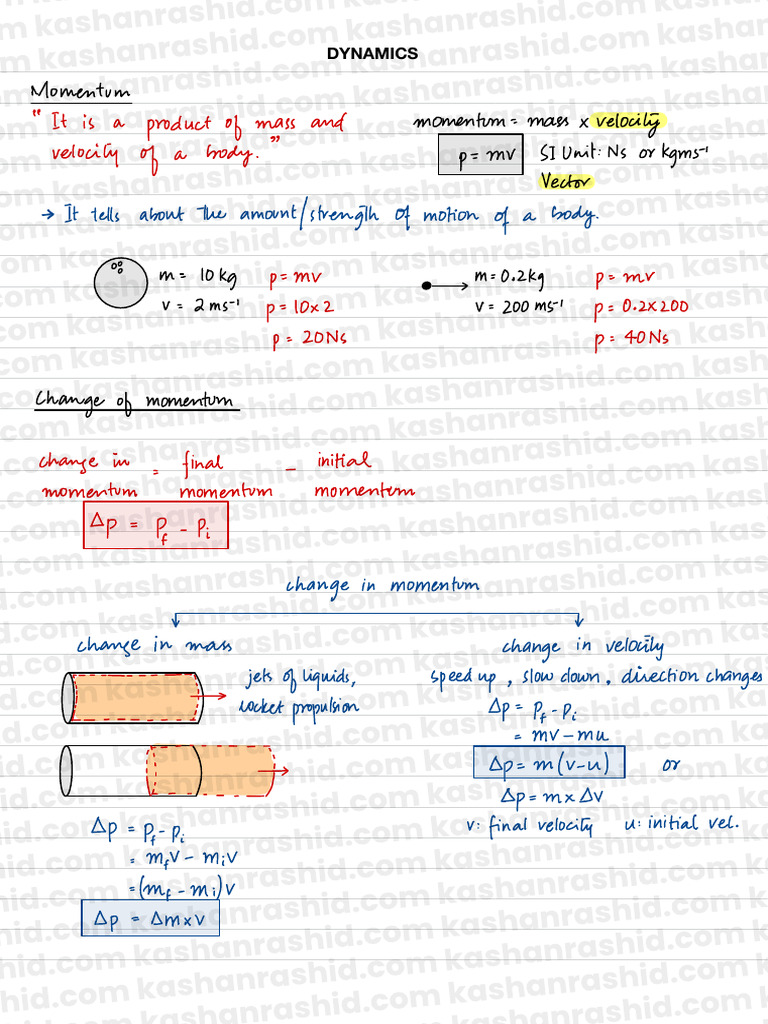 DYNAMICS
Momentum
"It is a product of mass and
velocity of a body."
momentum = mass x velocity
p = mv
SI Unit: Ns or kgms⁻¹
Vector
→ It tells about the amount/strength of motion of a body.
m = 10 kg
v = 2 ms⁻¹
p = mv
p = 10x2
p = 20Ns
m = 0.2kg
v = 200 ms⁻¹
p = mv
p = 0.2x200
p = 40Ns
Change of momentum
change in momentum = final momentum - initial momentum
Δp = P_f - P_i
change in momentum
change in mass
jets of liquids,
rocket propulsion
Δp = P_f - P_i
= m_f v - m_i v
= (m_f - m_i) v
Δp = Δm x v
change in velocity
speed up, slow down, direction changes
Δp = P_f - P_i
= mv - mu
Δp = m(v-u) or
Δp = m x Δv
v: final velocity u: initial vel.
kashanrashid.com